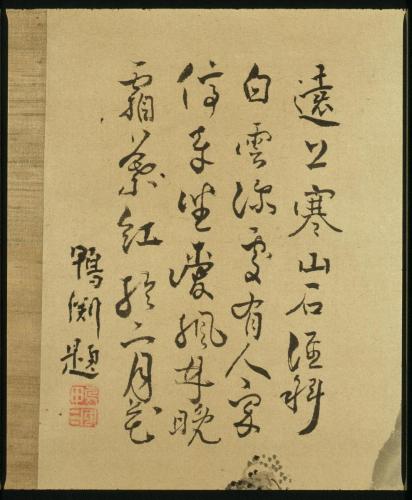 遠上寒山石徑斜
白雲深處有人家
停車坐愛楓林晚
霜葉紅於二月花
鴨 題